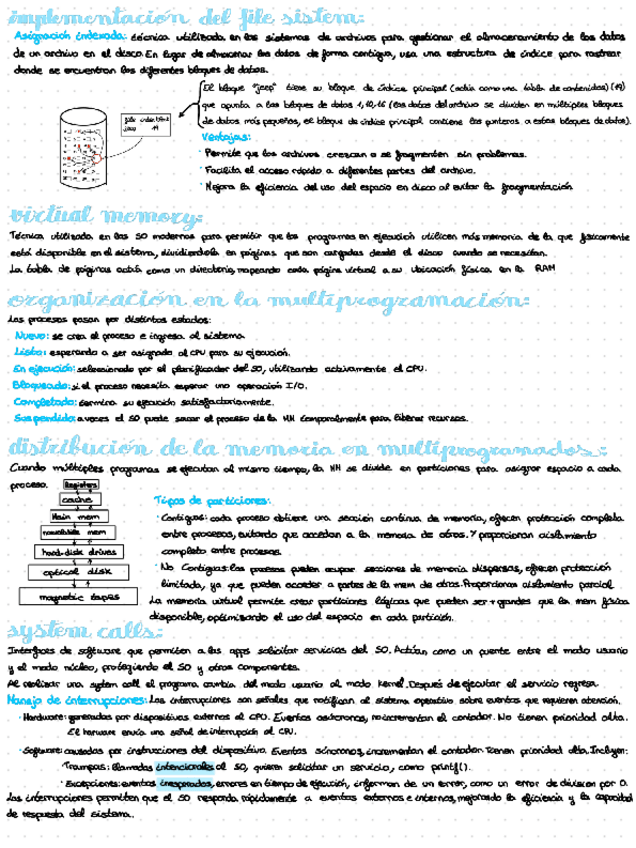 implementación del file sistem:
Asignación indexada: técnica utilizada en los sistemas de archivos para gestionar el almacenamiento de los datos
de un archivo en el disco. En lugar de almacenar los datos de forma contigua, usa una estructura de índice para rastrear
donde se encuentran los diferentes bloques de datos.
El bloque "jeep" tiene su bloque de índice principal (actúa como una tabla de contenidos) (19)
que apunta a los bloques de datos 1, 10, 16 (los datos del archivo se dividen en múltiples bloques
de datos más pequeños, el bloque de índice principal contiene los punteros a estos bloques de datos).
file index block
jeep 19
Ventajas:
· Permite que los archivos crezcan o se fragmenten sin problemas.
· Facilita el acceso rápido a diferentes partes del archivo.
· Mejora la eficiencia del uso del espacio en disco al evitar la fragmentación
virtual memory:
Técnica utilizada en los SO modernos para permitir que los programas en ejecución utilicen más memoria de la que físicamente
está disponible en el sistema, dividiéndola en páginas que son cargadas desde el disco cuando se necesitan.
La tabla de páginas actúa como un directorio, mapeando cada página virtual a su ubicación física en la RAM
organización en la multiprogramación:
Los procesos pasan por distintos estados:
Nuevo: se crea el proceso e ingresa al sistema.
Listo: esperando a ser asignado al CPU para su ejecución.
En ejecución: seleccionado por el planificador del SO, utilizando activamente el CPU.
Bloqueado: si el proceso necesita esperar una operación I/O.
Completado: termina su ejecución satisfactoriamente.
Suspendido: a veces el SO puede sacar el proceso de la MM temporalmente para liberar recursos.
distribución de la memoria en multiprogramados:
Cuando múltiples programas se ejecutan al mismo tiempo, la MM se divide en particiones para asignar espacio a cada
proceso.
Registers
cache
Main mem
nonvolatile mem
hard-disk drives
optical disk
magnetic tapes
Tipos de particiones:
· Contiguas: cada proceso obtiene una sección continua de memoria, ofrecen protección completa
entre procesos, evitando que accedan a la memoria de otros. Y proporcionan aislamiento
completo entre procesos.
· No Contiguas: los procesos pueden ocupar secciones de memoria dispersas, ofrecen protección
limitada, ya que pueden acceder a partes de la mem de otros. Proporcionan aislamiento parcial
La memoria virtual permite crear particiones lógicas que pueden ser + grandes que la mem física
disponible, optimizando el uso del espacio en cada partición.
system calls:
Interfaces de software que permiten a las apps solicitar servicios del SO. Actúan como un puente entre el modo usuario
y el modo núcleo, protegiendo el SO y otros componentes.
Al realizar una system call el programa cambia del modo usuario al modo kernel. Después de ejecutar el servicio regresa.
Manejo de interrupciones: Las interrupciones son señales que notifican al sistema operativo sobre eventos que requieren atención.
· Hardware: generadas por dispositivos externos al CPU. Eventos asíncronos, no incrementan el contador. No tienen prioridad alta.
El harware envía una señal de interrupción al CPU.
· Software: causadas por instrucciones del dispositivo. Eventos síncronos, incrementan el contador. Tienen prioridad alta. Incluyen:
Trampas: llamadas intencionales al SO, quieren solicitar un servicio, como printf().
· Excepciones: eventos inesperados, errores en tiempo de ejecución, informan de un error, como un error de division por 0.
Las interrupciones permiten que el SO responda rápidamente a eventos externos e internos, mejorando la eficiencia y la capacidad
de respuesta del sistema.